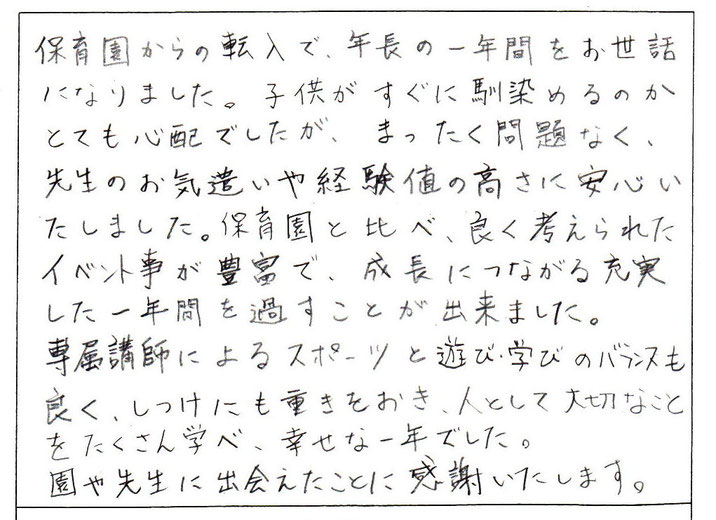 保育園からの転入で、年長の一年間をお世話
になりました。子供がすぐに馴染めるのか
とても心配でしたが、まったく問題なく、
先生のお気遣いや経験値の高さに安心い
たしました。保育園と比べ、良く考えられた
イベント事が豊富で、成長につながる充実
した一年間を過すことが出来ました。
専属講師によるスポーツと遊び・学びのバランスも
良く、しつけにも重きをおき、人として大切なこと
をたくさん学べ、幸せな一年でした。
園や先生に出会えたことに感謝いたします。